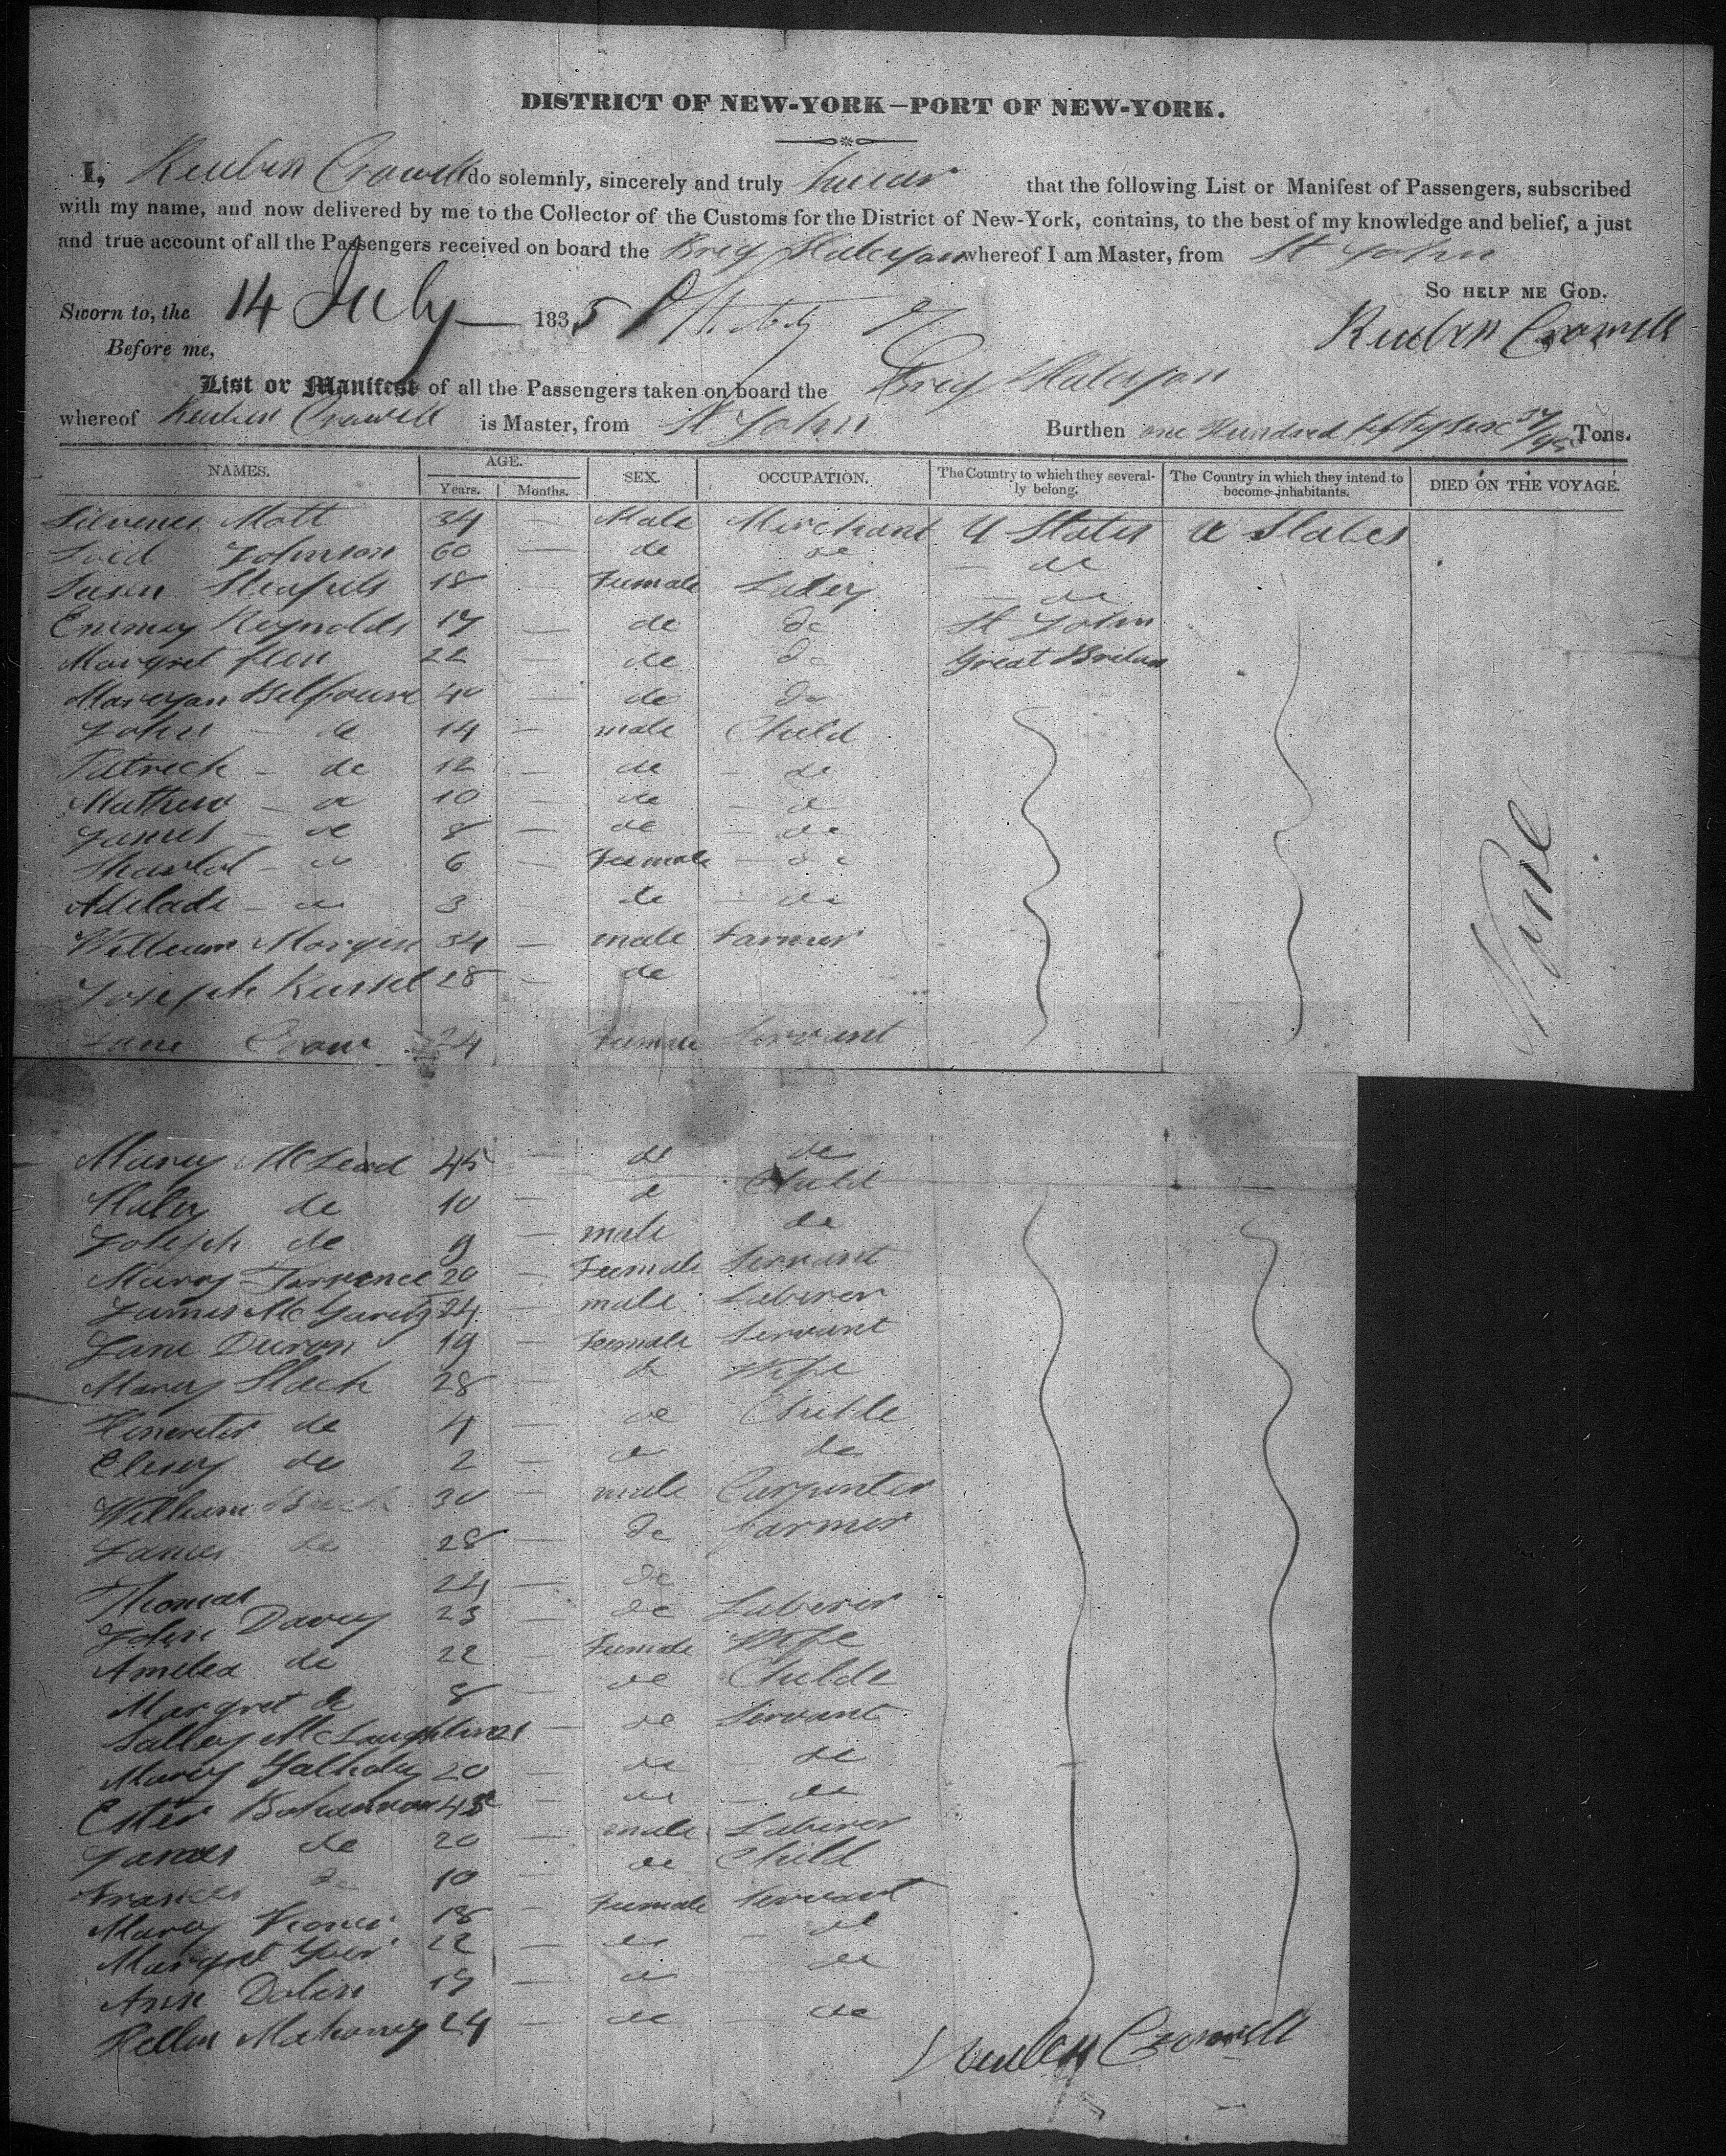 DISTRICT OF NEW-YORK—PORT OF NEW-YORK.
I, Reuben Crowell do solemnly, sincerely and truly swear that the following List or Manifest of Passengers, subscribed
with my name, and now delivered by me to the Collector of the Customs for the District of New-York, contains, to the best of my knowledge and belief, a just
and true account of all the Passengers received on board the Breig Halcyon whereof I am Master, from St John
So help me God.
Sworn to, the 14 July 1835
Reuben Crowell
Before me,
List or Manifest of all the Passengers taken on board the Breig Halcyon
whereof Reuben Crowell is Master, from St John Burthen one Hundred fifty six Tons.
NAMES. AGE. SEX. OCCUPATION. The Country to which they severally belong. The Country in which they intend to become inhabitants. DIED ON THE VOYAGE.
Years. Months.
Mott 34 — Male Merchant U States U States
Johnson 60 — de de — de
Susen 18 — Female Ladey — de
Emmey Reynolds 17 — de do St John
Margret 22 — de do Great Breten
Mareyan Belfoure 40 — de do
John — de 14 — male Child
Patrick — de 12 — de — de
Mathew — de 10 — de — de
James — de 8 — de — de
de 6 — Female — de
Adelade — de 3 — de — de
William Morgen 34 — male Farmer
Joseph Kussel 28 — de
Jane Crow 24 Female Servent
None
Marey McLeod 45 — de de
de 10 — de Child
Joseph de 9 — male de
Marey Torrence 20 — Female Servant
James McGarety 24 — male Laberer
Jane Duron 19 — Female Servant
Marey Slack 28 — de Wife
de 4 — de Childe
de 2 — de de
William 30 — male Carpenter
James de 28 — de farmer
Thomas 24 — de
John Davey 23 — de Laberer
Amelea de 22 — Female Wife
Margret de 8 — de Childe
Salley McLaughlin 21 — de Servant
Marey 20 — de — de
Ester 45 — de — de
James de 20 — male Laberer
Frances de 10 — de Child
Marey 18 — Female Servant
Margret 22 — de — de
Ann Dolin 19 — de — de
Hellen Mahoney 24 — de — de
Reuben Crowell